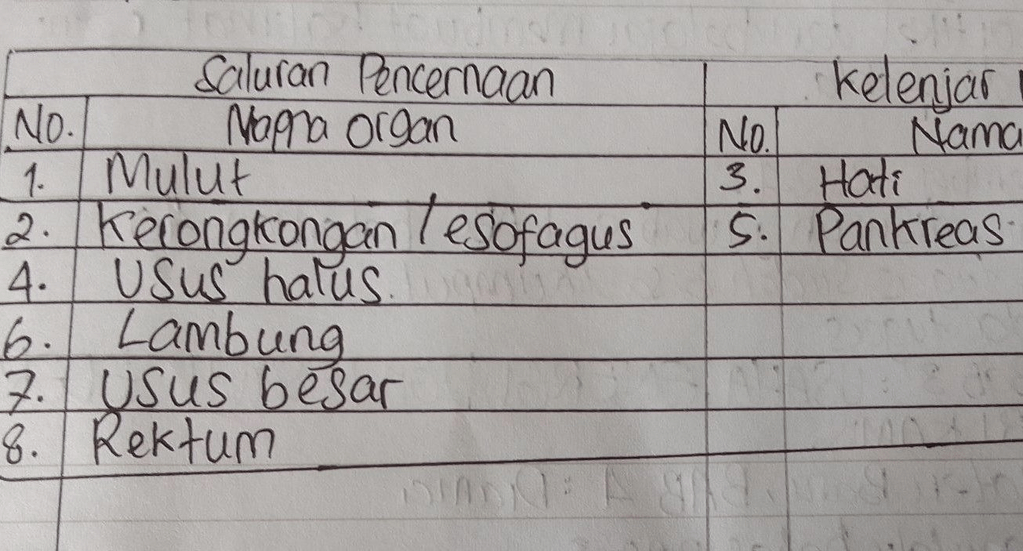 Saluran Pencernaan Kelenjar
No. Nama Organ No. Nama
1. Mulut 3. Hati
2. Kerongkongan / esofagus 5. Pankreas
4. Usus halus.
6. Lambung
7. Usus besar
8. Rektum